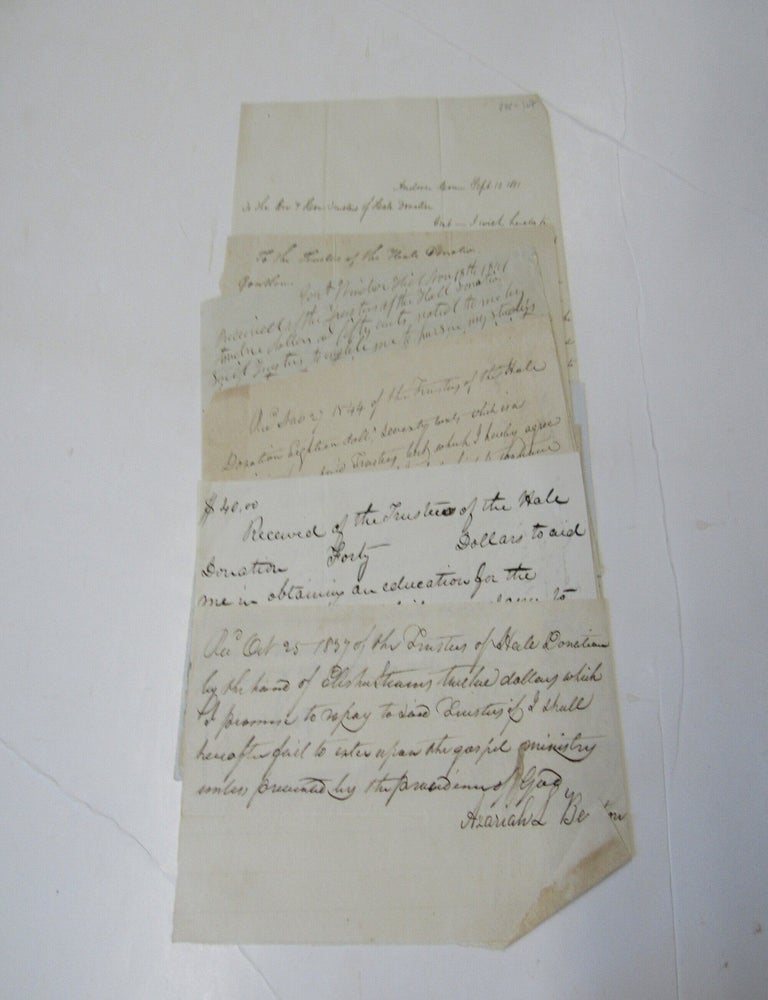 Andover Conn. Sept. 10
To the Rev & Hon Trustees of Hale Donation
Gent
To the Trustees of the Hale Donation
Gentlm.
East Windsor Hill Nov 18th 1841
Received of the Trustees of the Hale Donation
twelve dollars and fifty cents, voted to me by
said Trustees, to enable me to pursue my studies
Recd Nov 27 1844 of the Trustees of the Hale
Donation Eighteen dolls seventy cents which is a
said Trustees but which I hereby agree
$40.00
Received of the Trustees of the Hale
Donation Forty Dollars to aid
me in obtaining an education for the
Recd Oct 25 1837 of the Trustees of Hale Donation
by the hand of Elisha Stearns twelve dollars which
I promise to repay to said Trustees if I shall
hereafter fail to enter upon the gospel ministry
unless prevented by the providence of God
Azariah